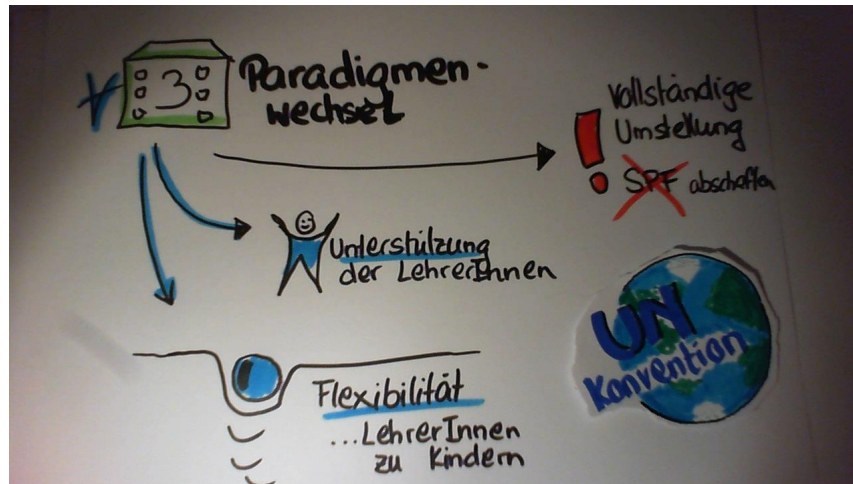 3
Paradigmen-
wechsel
Vollständige
Umstellung
SPF abschaffen
Unterstützung
der LehrerInnen
UN
Konvention
Flexibilität
...LehrerInnen
zu Kindern